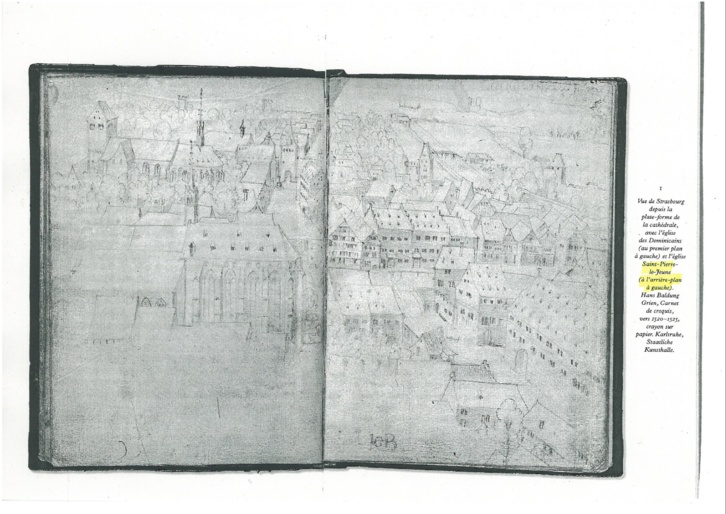 1
Vue de Strasbourg
depuis la
plate-forme de
la cathédrale,
avec l'église
des Dominicains
(au premier plan
à gauche) et l'église
Saint-Pierre-
le-Jeune
(à l'arrière-plan
à gauche).
Hans Baldung
Grien, Carnet
de croquis,
vers 1520–1525,
crayon sur
papier. Karlsruhe,
Staatliche
Kunsthalle.